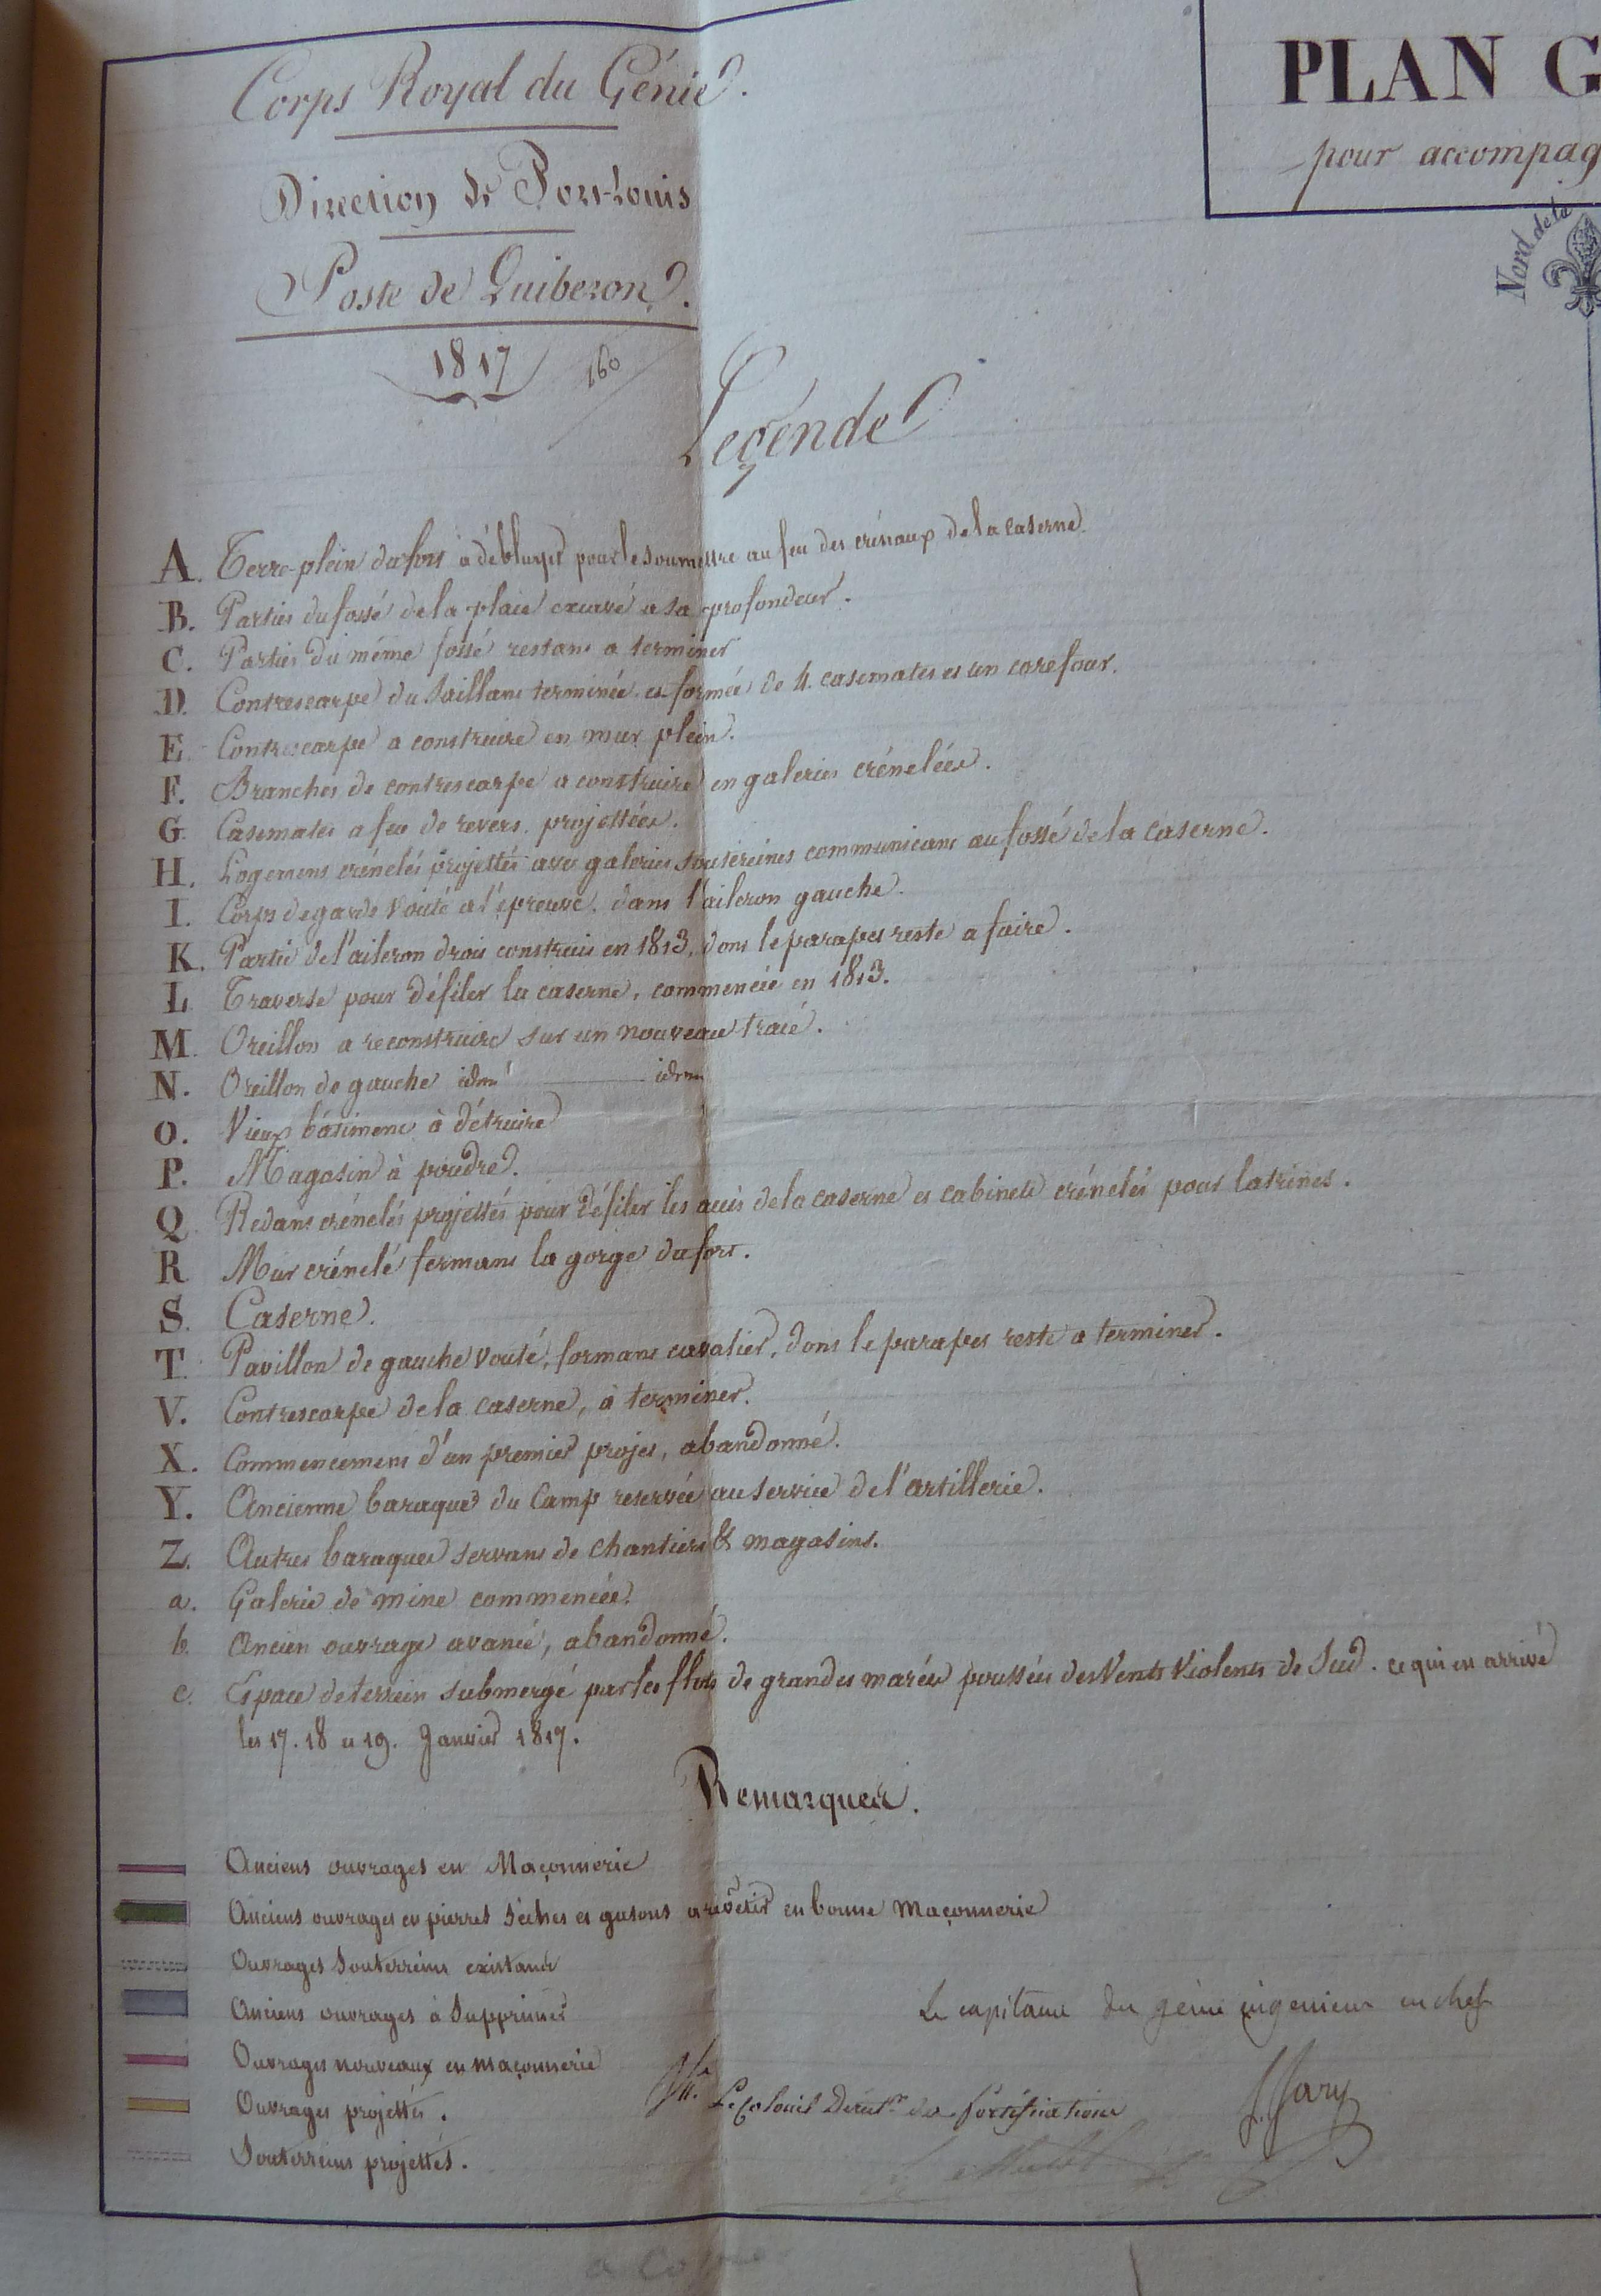 Corps Royal du Génie.
PLAN G
pour accompag
Direction de Port-Louis
Nord de la
Poste de Quiberon.
1817
160
Légende
A. Terre-plein du fort à déblayer pour le soumettre au feu des crénaux de la caserne.
B. Parties du fossé de la place excavé a sa profondeur.
C. Parties du même fossé restant a terminer
D. Contrescarpe du Saillant terminée et formée de 4 casemates et un carefour.
E. Contrescarpe a construire en mur plein.
F. Branches de contrescarpe a construire en galeries crénelées.
G. Casemates a feu de revers projettées.
H. Logemens crénelés projettés avec galeries souterreines communicant au fossé de la caserne.
I. Corps de garde vouté a l'épreuve, dans l'aileron gauche.
K. Partie de l'aileron droit construit en 1813, dont le parapet reste a faire.
L Traverse pour défiler la caserne, commencée en 1813.
M. Oreillon a reconstruire sur un nouveau tracé.
N. Oreillon de gauche idem idem
O. Vieux bâtiment à détruire
P. Magasin à poudre.
Q Redans crénelés projettés pour défiler les accès de la caserne et cabinets crénelés pour latrines.
R Mur crénelé fermant la gorge du fort.
S. Caserne.
T. Pavillon de gauche vouté, formant cavalier, dont le parapet reste a terminer.
V. Contrescarpe de la caserne, à terminer.
X. Commencement d'un premier projet, abandonné.
Y. Ancienne baraque du Camp reservée au service de l'artillerie.
Z. Autres baraques servant de chantiers & magasins.
a. Galerie de mine commencée.
b. Ancien ouvrage avancé, abandonné.
c. Espace de terrein submergé par les flots de grandes marées poussées des Vents Violents de Sud. ce qui est arrivé
les 17. 18 et 19. Janvier 1817.
Remarques.
Anciens ouvrages en Maçonnerie
Anciens ouvrages en pierres sèches et gasons a revêtir en bonne Maçonnerie
Ouvrages Souterreins existants
Anciens ouvrages à Supprimer
Le capitaine du génie ingenieur en chef
Ouvrages nouveaux en maçonnerie
Le Colonel Direct.r des fortifications
Ouvrages projettés.
Souterreins projettés.